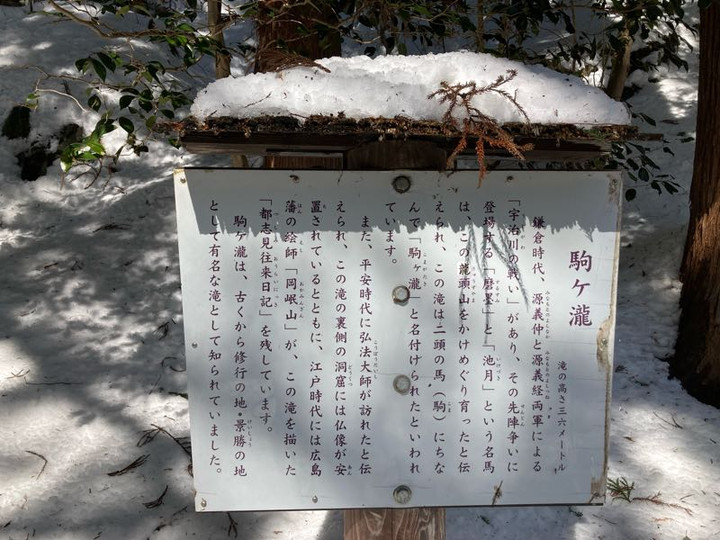 駒ケ瀧
滝の高さ三六メートル
鎌倉時代、源義仲と源義経両軍による
「宇治川の戦い」があり、その先陣争いに
登場する「磨墨」と「池月」という名馬
は、この龍頭山をかけめぐり育ったと伝
えられ、この滝は二頭の馬（駒）にちな
んで「駒ヶ瀧」と名付けられたといわれ
ています。
また、平安時代に弘法大師が訪れたと伝
えられ、この滝の裏側の洞窟には仏像が安
置されているとともに、江戸時代には広島
藩の絵師「岡岷山」が、この滝を描いた
「都志見往来日記」を残しています。
駒ケ瀧は、古くから修行の地・景勝の地
として有名な滝として知られていました。